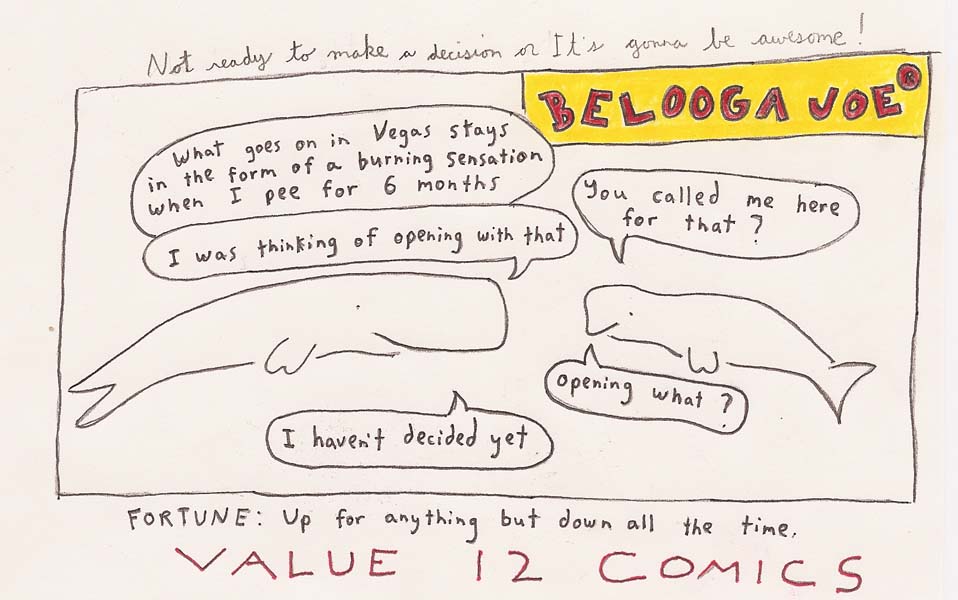 Not ready to make a decision or It's gonna be awesome!
BELOOGA JOE®
What goes on in Vegas stays
in the form of a burning sensation
when I pee for 6 months
I was thinking of opening with that
You called me here
for that?
opening what?
I haven't decided yet
FORTUNE: Up for anything but down all the time.
VALUE 12 COMICS